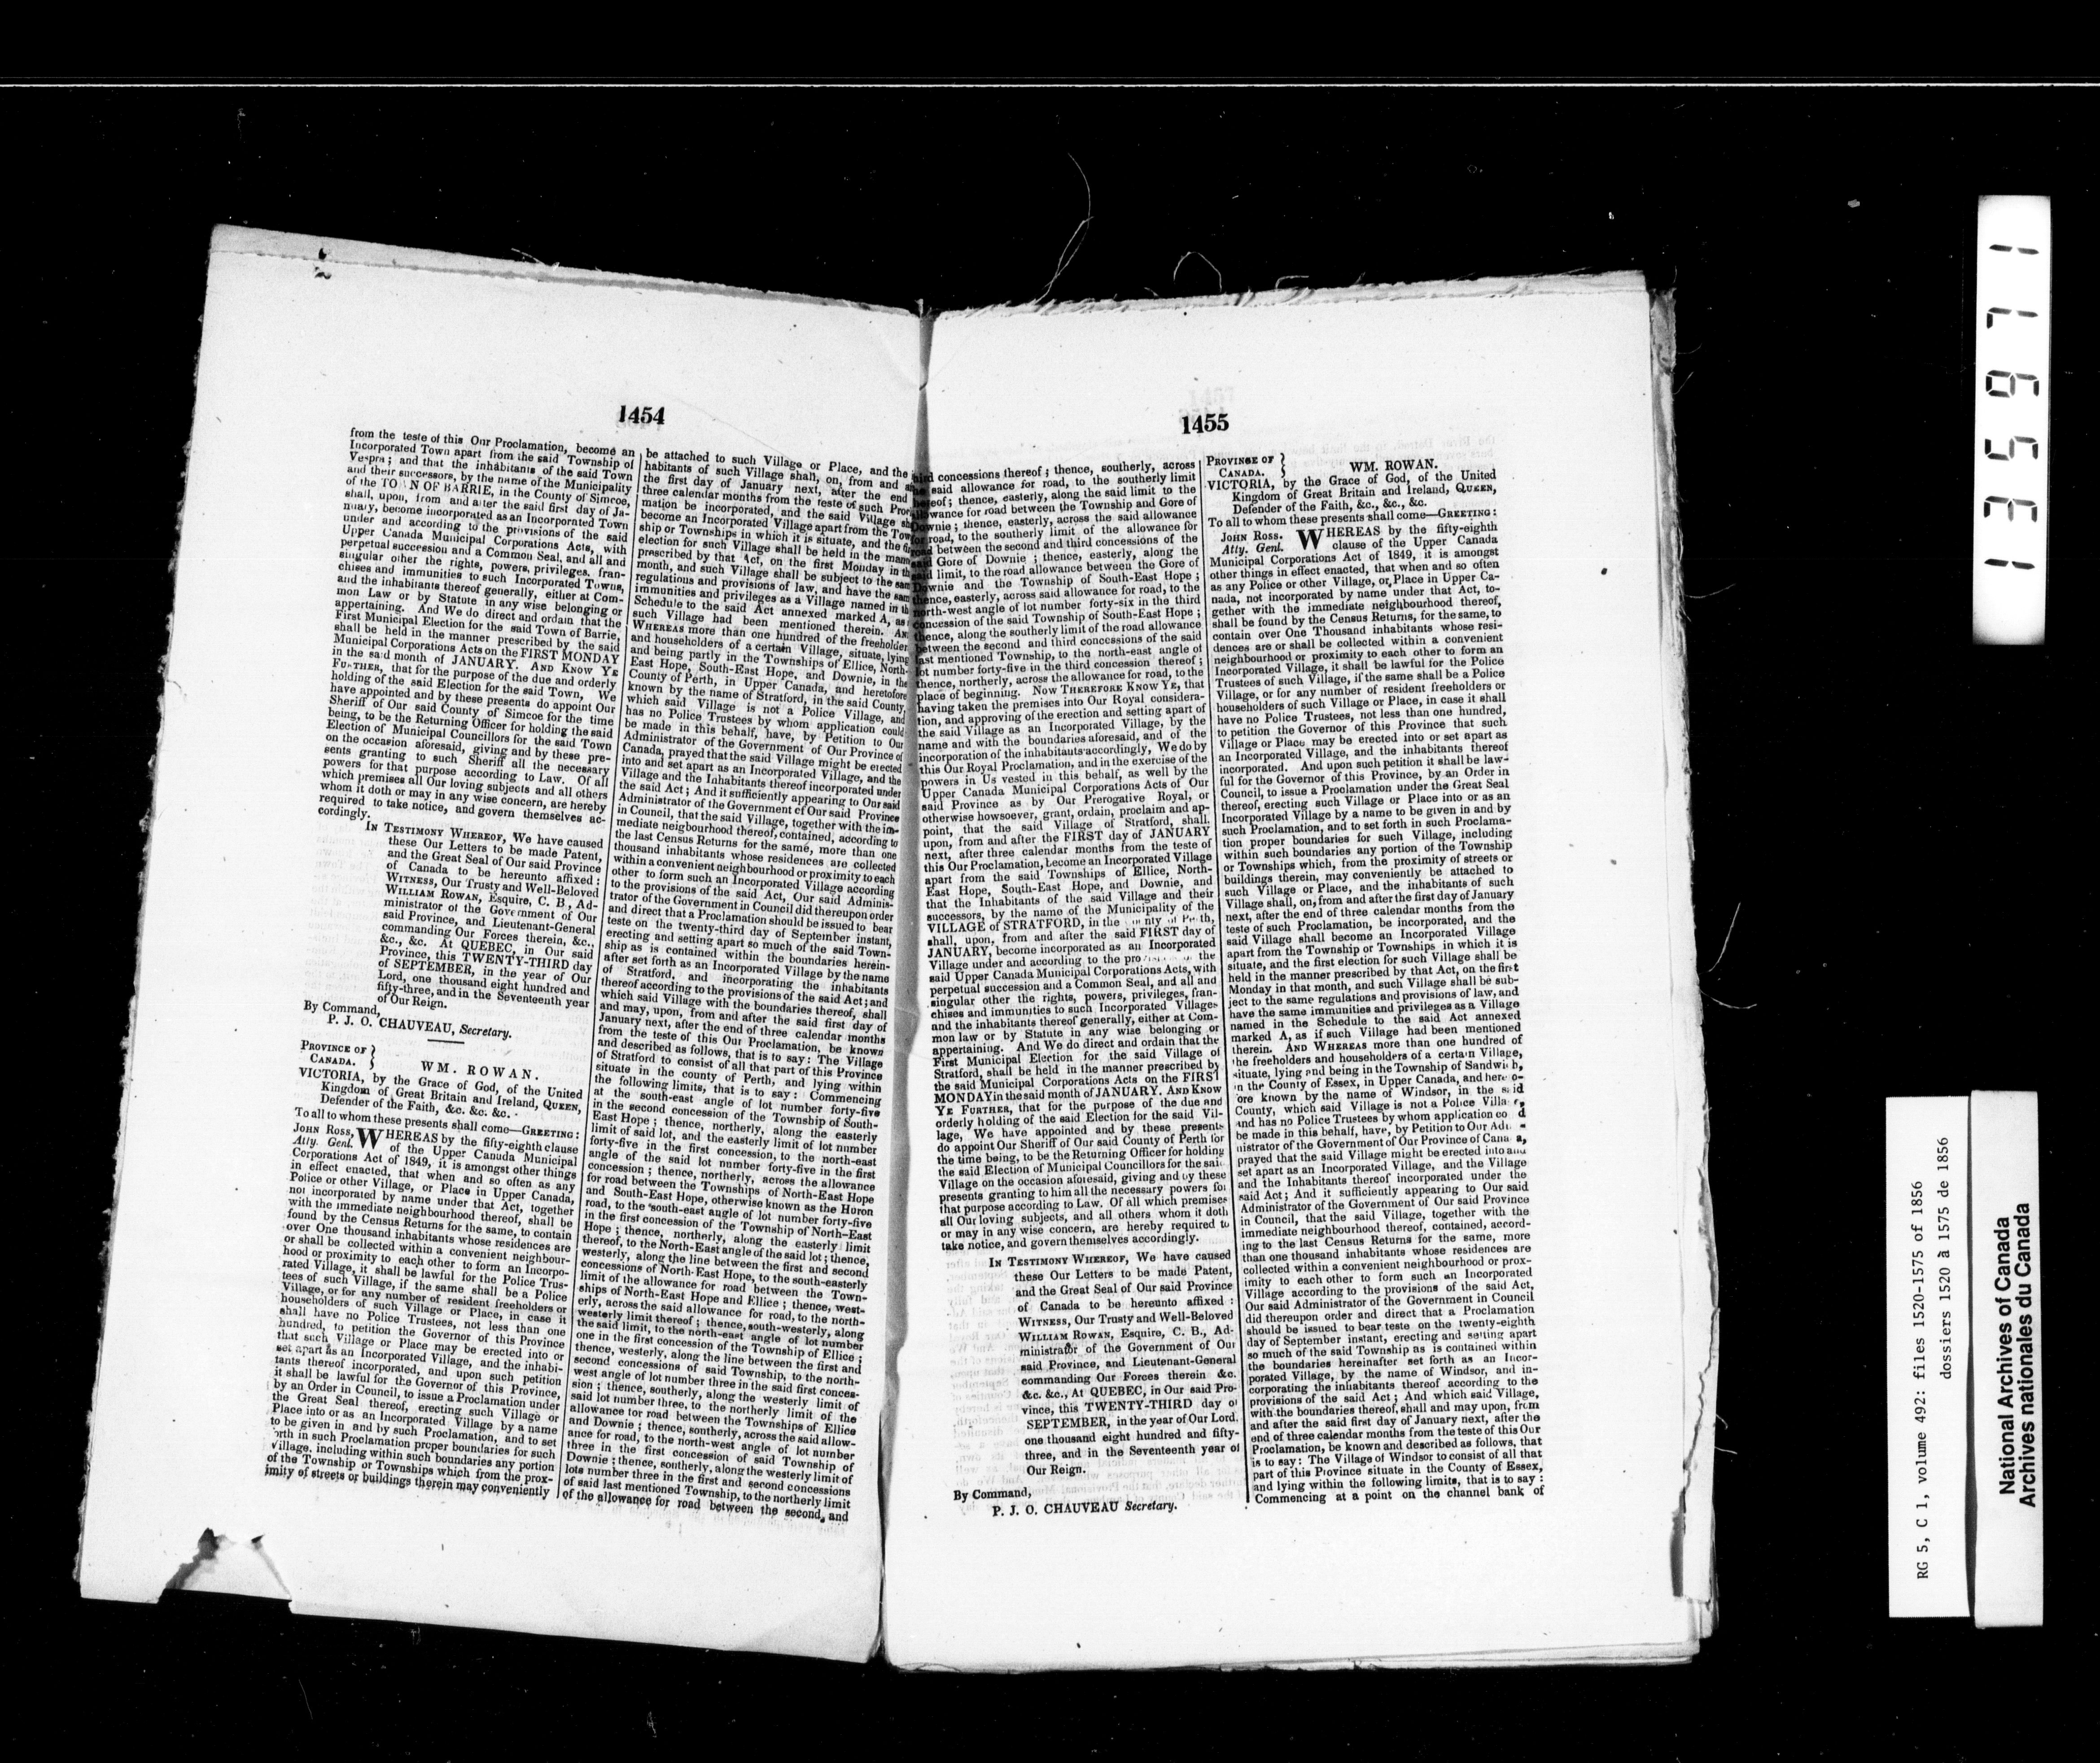 1454
from the teste of this Our Proclamation, become an
Incorporated Town apart from the said Township of
Vespra; and that the inhabitants of the said Town
and their successors, by the name of the Municipality
of the TO N OF BARRIE, in the County of Simcoe,
shall, upon, from and after the said first day of Ja-
nuary, become incorporated as an Incorporated Town
under and according to the provisions of the said
Upper Canada Municipal Corporations Acts, with
perpetual succession and a Common Seal, and all and
singular other the rights, powers, privileges, fran-
chises and immunities to such Incorporated Towns,
and the inhabitants thereof generally, either at Com-
mon Law or by Statute in any wise belonging or
appertaining. And We do direct and ordain that the
First Municipal Election for the said Town of Barrie,
shall be held in the manner prescribed by the said
Municipal Corporations Acts on the FIRST MONDAY
in the said month of JANUARY. AND KNOW YE
FURTHER, that for the purpose of the due and orderly
holding of the said Election for the said Town, We
have appointed and by these presents do appoint Our
Sheriff of Our said County of Simcoe for the time
being, to be the Returning Officer for holding the said
Election of Municipal Councillors for the said Town
on the occasion aforesaid, giving and by these pre-
sents granting to such Sheriff all the necessary
powers for that purpose according to Law. Of all
which premises all Our loving subjects and all others
whom it doth or may in any wise concern, are hereby
required to take notice, and govern themselves ac-
cordingly.
IN TESTIMONY WHEREOF, We have caused
these Our Letters to be made Patent,
and the Great Seal of Our said Province
of Canada to be hereunto affixed:
WITNESS, Our Trusty and Well-Beloved
WILLIAM ROWAN, Esquire, C. B., Ad-
ministrator of the Government of Our
said Province, and Lieutenant-General
commanding Our Forces therein, &c.,
&c., &c. At QUEBEC, in Our said
Province, this TWENTY-THIRD day
of SEPTEMBER, in the year of Our
Lord, one thousand eight hundred and
fifty-three, and in the Seventeenth year
of Our Reign.
By Command,
P. J. O. CHAUVEAU, Secretary.
PROVINCE OF }
CANADA. }
WM. ROWAN.
VICTORIA, by the Grace of God, of the United
Kingdom of Great Britain and Ireland, QUEEN,
Defender of the Faith, &c. &c. &c.
To all to whom these presents shall come—GREETING:
JOHN ROSS, WHEREAS by the fifty-eighth clause
Atty. Genl. of the Upper Canada Municipal
Corporations Act of 1849, it is amongst other things
in effect enacted, that when and so often as any
Police or other Village, or Place in Upper Canada,
not incorporated by name under that Act, together
with the immediate neighbourhood thereof, shall be
found by the Census Returns for the same, to contain
over One thousand inhabitants whose residences are
or shall be collected within a convenient neighbour-
hood or proximity to each other to form an Incorpo-
rated Village, it shall be lawful for the Police Trus-
tees of such Village, if the same shall be a Police
Village, or for any number of resident freeholders or
householders of such Village or Place, in case it
shall have no Police Trustees, not less than one
hundred, to petition the Governor of this Province
that such Village or Place may be erected into or
set apart as an Incorporated Village, and the inhabi-
tants thereof incorporated, and upon such petition
it shall be lawful for the Governor of this Province,
by an Order in Council, to issue a Proclamation under
the Great Seal thereof, erecting such Village or
Place into or as an Incorporated Village by a name
to be given in and by such Proclamation, and to set
orth in such Proclamation proper boundaries for such
Village, including within such boundaries any portion
of the Township or Townships which from the prox-
imity of streets or buildings therein may conveniently
be attached to such Village or Place, and the
habitants of such Village shall, on, from and
the first day of January next, after the end
three calendar months from the teste of such
mation be incorporated, and the said Village
become an Incorporated Village apart from the
ship or Townships in which it is situate, and the
election for such Village shall be held in the
prescribed by that Act, on the first Monday in
month, and such Village shall be subject to the
regulations and provisions of law, and have the
immunities and privileges as a Village named in
Schedule to the said Act annexed marked A, as
such Village had been mentioned therein.
WHEREAS more than one hundred of the freeholder
and householders of a certain Village, situate, lying
and being partly in the Townships of Ellice, North-
East Hope, South-East Hope, and Downie, in the
County of Perth, in Upper Canada, and heretofore
known by the name of Stratford, in the said County,
which said Village is not a Police Village, and
has no Police Trustees by whom application could
be made in this behalf, have, by Petition to Our
Administrator of the Government of Our Province of
Canada, prayed that the said Village might be erected
into and set apart as an Incorporated Village, and the
Village and the Inhabitants thereof incorporated under
the said Act; And it sufficiently appearing to Our said
Administrator of the Government of Our said Province
in Council, that the said Village, together with the im-
mediate neigbourhood thereof, contained, according to
the last Census Returns for the same, more than one
thousand inhabitants whose residences are collected
within a convenient neighbourhood or proximity to each
other to form such an Incorporated Village according
to the provisions of the said Act, Our said Adminis-
trator of the Government in Council did thereupon order
and direct that a Proclamation should be issued to bear
teste on the twenty-third day of September instant,
erecting and setting apart so much of the said Town-
ship as is contained within the boundaries herein-
after set forth as an Incorporated Village by the name
of Stratford, and incorporating the inhabitants
thereof according to the provisions of the said Act; and
which said Village with the boundaries thereof, shall
and may, upon, from and after the said first day of
January next, after the end of three calendar months
from the teste of this Our Proclamation, be known
and described as follows, that is to say: The Village
of Stratford to consist of all that part of this Province
situate in the county of Perth, and lying within
the following limits, that is to say: Commencing
at the south-east angle of lot number forty-five
in the second concession of the Township of South-
East Hope; thence, northerly, along the easterly
limit of said lot, and the easterly limit of lot number
forty-five in the first concession, to the north-east
angle of the said lot number forty-five in the first
concession; thence, northerly, across the allowance
for road between the Townships of North-East Hope
and South-East Hope, otherwise known as the Huron
road, to the south-east angle of lot number forty-five
in the first concession of the Township of North-East
Hope; thence, northerly, along the easterly limit
thereof, to the North-East angle of the said lot; thence,
westerly, along the line between the first and second
concessions of North-East Hope, to the south-easterly
limit of the allowance for road between the Town-
ships of North-East Hope and Ellice; thence, west-
erly, across the said allowance for road, to the north-
westerly limit thereof; thence, south-westerly, along
the said limit, to the north-east angle of lot number
one in the first concession of the Township of Ellice;
thence, westerly, along the line between the first and
second concessions of said Township, to the north-
west angle of lot number three in the said first conces-
sion; thence, southerly, along the westerly limit of
said lot number three, to the northerly limit of the
allowance for road between the Townships of Ellice
and Downie; thence, southerly, across the said allow-
ance for road, to the north-west angle of lot number
three in the first concession of said Township of
Downie; thence, southerly, along the westerly limit of
lots number three in the first and second concessions
of said last mentioned Township, to the northerly limit
of the allowance for road between the second, and
1455
concessions thereof; thence, southerly, across
said allowance for road, to the southerly limit
thence, easterly, along the said limit to the
allowance for road between the Township and Gore of
Downie; thence, easterly, across the said allowance
for road, to the southerly limit of the allowance for
road between the second and third concessions of the
said Gore of Downie; thence, easterly, along the
said limit, to the road allowance between the Gore of
Downie and the Township of South-East Hope;
thence, easterly, across said allowance for road, to the
north-west angle of lot number forty-six in the third
concession of the said Township of South-East Hope;
thence, along the southerly limit of the road allowance
between the second and third concessions of the said
last mentioned Township, to the north-east angle of
lot number forty-five in the third concession thereof;
thence, northerly, across the allowance for road, to the
place of beginning. NOW THEREFORE KNOW YE, that
having taken the premises into Our Royal considera-
tion, and approving of the erection and setting apart of
the said Village as an Incorporated Village, by the
name and with the boundaries aforesaid, and of the
incorporation of the inhabitants accordingly, We do by
this Our Royal Proclamation, and in the exercise of the
powers in Us vested in this behalf, as well by the
Upper Canada Municipal Corporations Acts of Our
said Province as by Our Prerogative Royal, or
otherwise howsoever, grant, ordain, proclaim and ap-
point, that the said Village of Stratford, shall,
upon, from and after the FIRST day of JANUARY
next, after three calendar months from the teste of
this Our Proclamation, become an Incorporated Village
apart from the said Townships of Ellice, North-
East Hope, South-East Hope, and Downie, and
that the Inhabitants of the said Village and their
successors, by the name of the Municipality of the
VILLAGE of STRATFORD, in the
shall, upon, from and after the said FIRST day of
JANUARY, become incorporated as an Incorporated
Village under and according to the the
said Upper Canada Municipal Corporations Acts, with
perpetual succession and a Common Seal, and all and
singular other the rights, powers, privileges, fran-
chises and immunities to such Incorporated Villages
and the inhabitants thereof generally, either at Com-
mon law or by Statute in any wise belonging or
appertaining. And We do direct and ordain that the
First Municipal Election for the said Village of
Stratford, shall be held in the manner prescribed by
the said Municipal Corporations Acts on the FIRST
MONDAY in the said month of JANUARY. AND KNOW
YE FURTHER, that for the purpose of the due and
orderly holding of the said Election for the said Vil-
lage, We have appointed and by these presents
do appoint Our Sheriff of Our said County of Perth for
the time being, to be the Returning Officer for holding
the said Election of Municipal Councillors for the said
Village on the occasion aforesaid, giving and by these
presents granting to him all the necessary powers for
that purpose according to Law. Of all which premises
all Our loving subjects, and all others whom it doth
or may in any wise concern, are hereby required to
take notice, and govern themselves accordingly.
IN TESTIMONY WHEREOF, We have caused
these Our Letters to be made Patent,
and the Great Seal of Our said Province
of Canada to be hereunto affixed:
WITNESS, Our Trusty and Well-Beloved
WILLIAM ROWAN, Esquire, C. B., Ad-
ministrator of the Government of Our
said Province, and Lieutenant-General
commanding Our Forces therein &c.
&c. &c., At QUEBEC, in Our said Pro-
vince, this TWENTY-THIRD day of
SEPTEMBER, in the year of Our Lord,
one thousand eight hundred and fifty-
three, and in the Seventeenth year of
Our Reign.
By Command,
P. J. O. CHAUVEAU Secretary.
PROVINCE OF }
CANADA. }
WM. ROWAN.
VICTORIA, by the Grace of God, of the United
Kingdom of Great Britain and Ireland, QUEEN,
Defender of the Faith, &c., &c., &c.
To all to whom these presents shall come—GREETING:
JOHN ROSS. WHEREAS by the fifty-eighth
Atty. Genl. clause of the Upper Canada
Municipal Corporations Act of 1849, it is amongst
other things in effect enacted, that when and so often
as any Police or other Village, or Place in Upper Ca-
nada, not incorporated by name under that Act, to-
gether with the immediate neighbourhood thereof,
shall be found by the Census Returns, for the same, to
contain over One Thousand inhabitants whose resi-
dences are or shall be collected within a convenient
neighbourhood or proximity to each other to form an
Incorporated Village, it shall be lawful for the Police
Trustees of such Village, if the same shall be a Police
Village, or for any number of resident freeholders or
householders of such Village or Place, in case it shall
have no Police Trustees, not less than one hundred,
to petition the Governor of this Province that such
Village or Place may be erected into or set apart as
an Incorporated Village, and the inhabitants thereof
incorporated. And upon such petition it shall be law-
ful for the Governor of this Province, by an Order in
Council, to issue a Proclamation under the Great Seal
thereof, erecting such Village or Place into or as an
Incorporated Village by a name to be given in and by
such Proclamation, and to set forth in such Proclama-
tion proper boundaries for such Village, including
within such boundaries any portion of the Township
or Townships which, from the proximity of streets or
buildings therein, may conveniently be attached to
such Village or Place, and the inhabitants of such
Village shall, on, from and after the first day of January
next, after the end of three calendar months from the
teste of such Proclamation, be incorporated, and the
said Village shall become an Incorporated Village
apart from the Township or Townships in which it is
situate, and the first election for such Village shall be
held in the manner prescribed by that Act, on the first
Monday in that month, and such Village shall be sub-
ject to the same regulations and provisions of law, and
have the same immunities and privileges as a Village
named in the Schedule to the said Act annexed
marked A, as if such Village had been mentioned
therein. AND WHEREAS more than one hundred of
the freeholders and householders of a certain Village,
situate, lying and being in the Township of Sandwich,
in the County of Essex, in Upper Canada, and
ore known by the name of Windsor, in the said
County, which said Village is not a Police
and has no Police Trustees by whom application
be made in this behalf, have, by Petition to Our
nistrator of the Government of Our Province of
prayed that the said Village might be erected into and
set apart as an Incorporated Village, and the Village
and the Inhabitants thereof incorporated under the
said Act; And it sufficiently appearing to Our said
Administrator of the Government of Our said Province
in Council, that the said Village, together with the
immediate neighbourhood thereof, contained, accord-
ing to the last Census Returns for the same, more
than one thousand inhabitants whose residences are
collected within a convenient neighbourhood or prox-
imity to each other to form such an Incorporated
Village according to the provisions of the said Act,
Our said Administrator of the Government in Council
did thereupon order and direct that a Proclamation
should be issued to bear teste on the twenty-eighth
day of September instant, erecting and setting apart
so much of the said Township as is contained within
the boundaries hereinafter set forth as an Incor-
porated Village, by the name of Windsor, and in-
corporating the inhabitants thereof according to the
provisions of the said Act; And which said Village,
with the boundaries thereof, shall and may upon, from
and after the said first day of January next, after the
end of three calendar months from the teste of this Our
Proclamation, be known and described as follows, that
is to say: The Village of Windsor to consist of all that
part of this Province situate in the County of Essex,
and lying within the following limits, that is to say:
Commencing at a point on the channel bank of
135971
RG 5, C 1, volume 492: files 1520-1575 of 1856
dossiers 1520 à 1575 de 1856
National Archives of Canada
Archives nationales du Canada